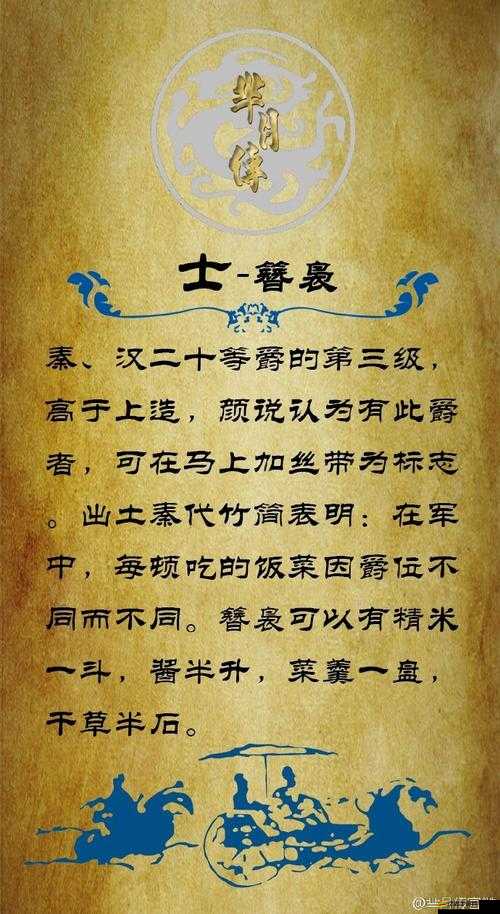 芈月传
士-簪袅
秦、汉二十等爵的第三级，
高于上造，颜说认为有此爵
者，可在马上加丝带为标志
。出土秦代竹简表明：在军
中，每顿吃的饭菜因爵位不
同而不同。簪袅可以有精米
一斗，酱半升，菜羹一盘，
干草半石。